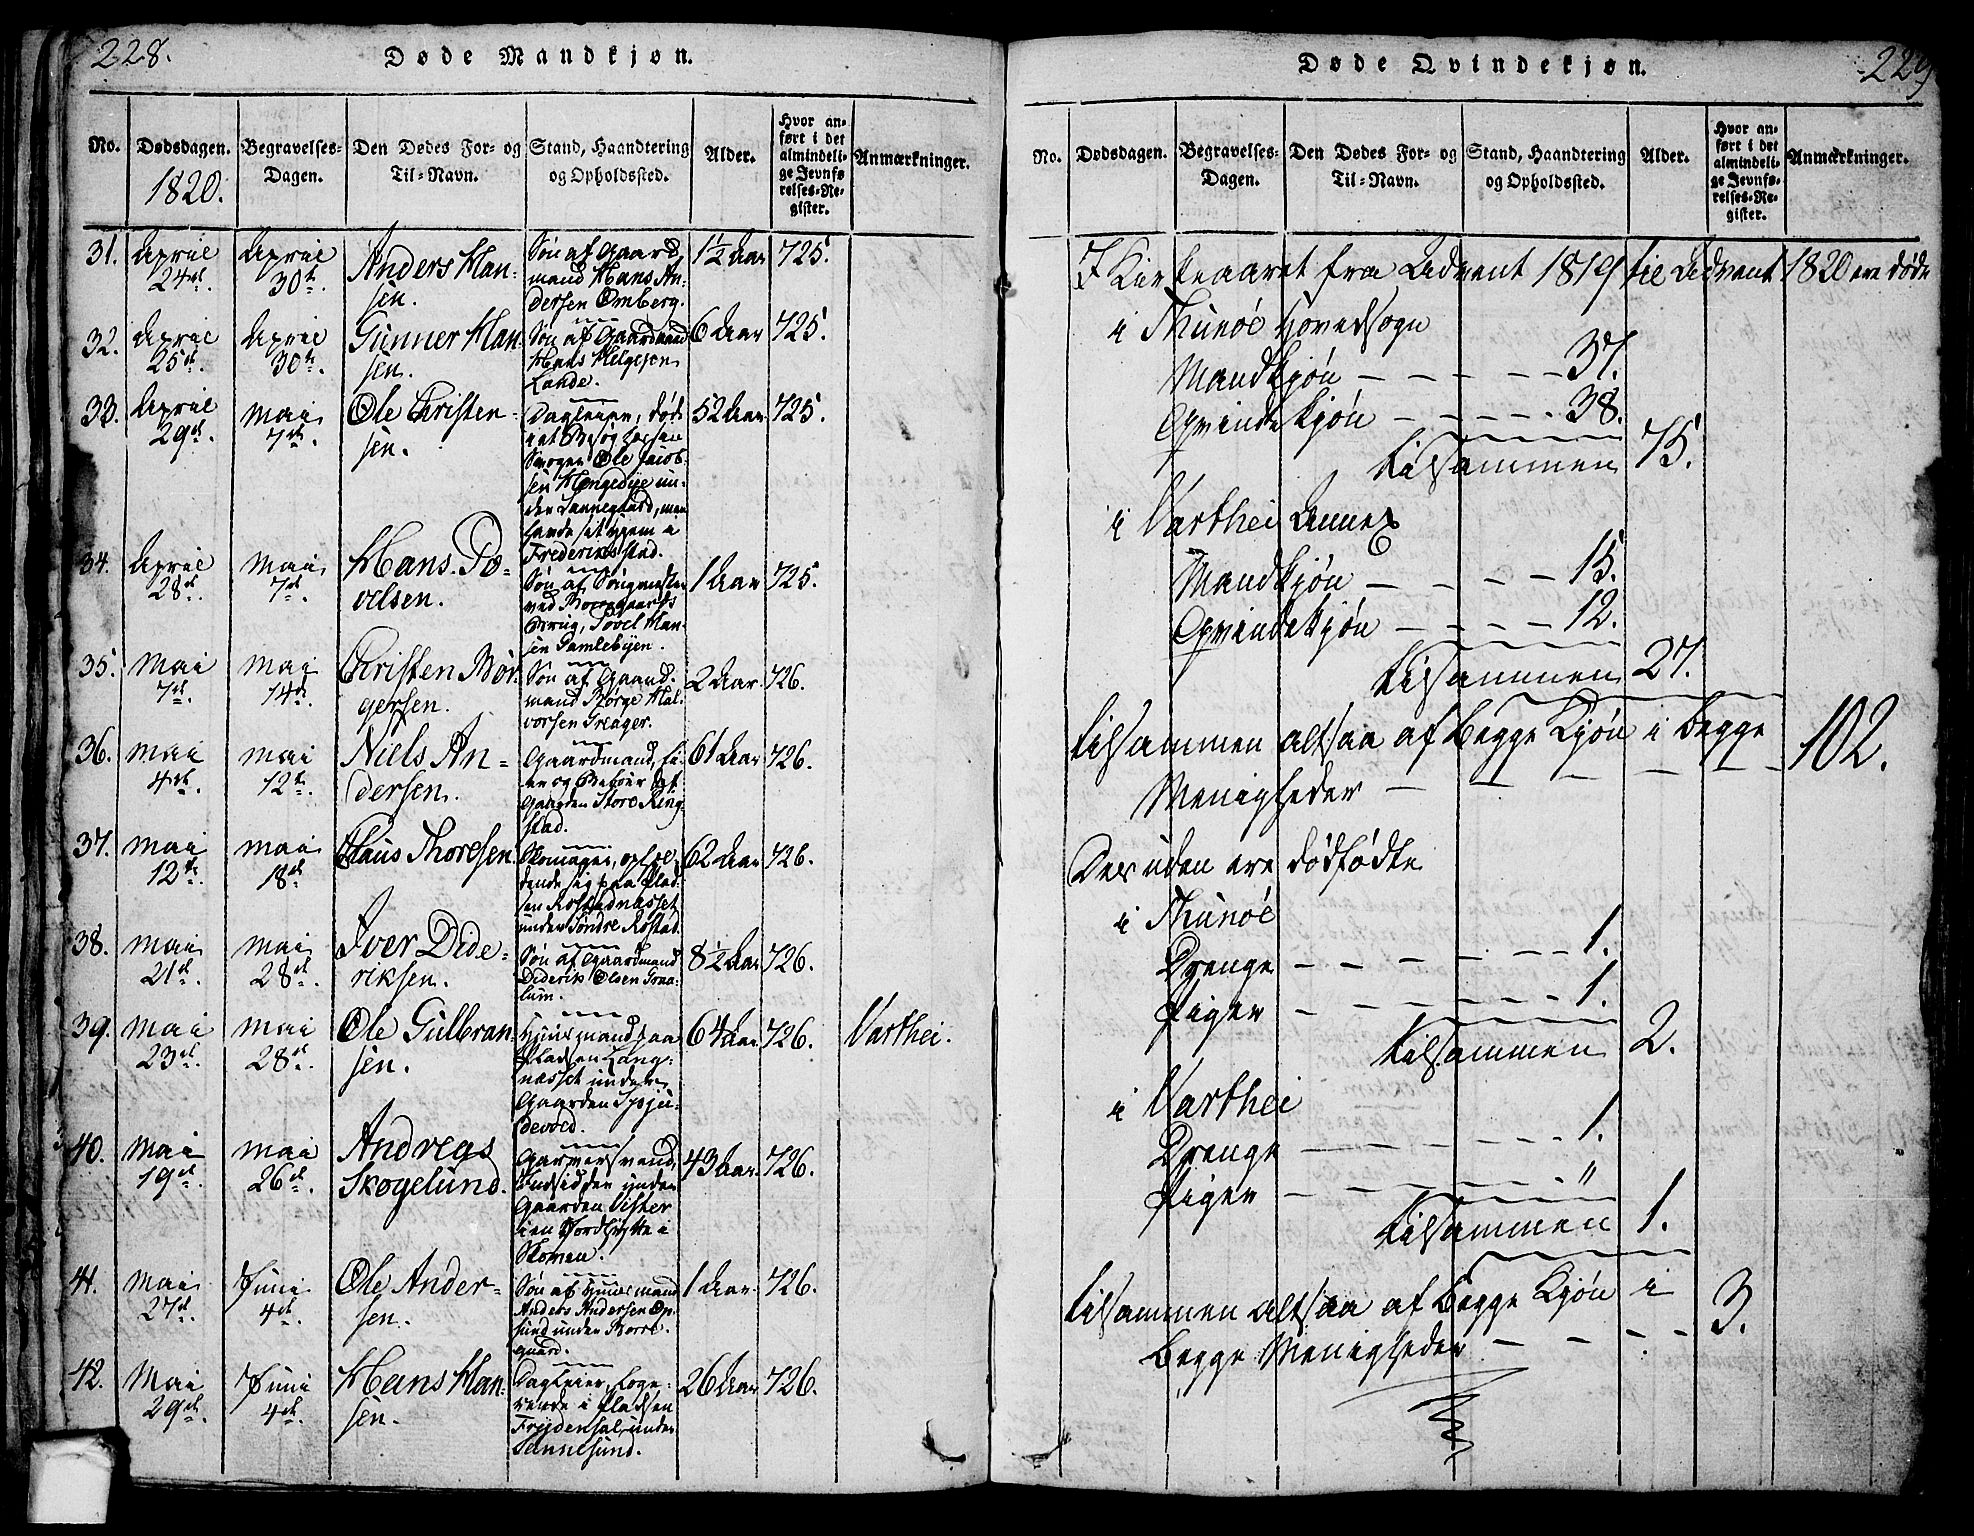 228.
Døde Mandkjøn.
No.
Dødsdagen.
1820.
Begravelses-
Dagen.
Den Dødes For- og
Til-Navn.
Stand, Haandtering
og Opholdssted.
Alder.
Hvor an-
ført i det
almindeli-
ge Jevnfø-
relses-Re-
gister.
Anmærkninger.
31. April
24de.
April
30te.
Anders Han-
sen.
Søn af Gaard
mand Hans An-
dersen Omberg.
1½ Aar 725.
32. April
25de.
April
30te.
Gunner Han
sen.
Søn af Gaardmand
Hans Helgesen
Lande.
6 Aar 725.
33. April
29de.
Mai
7de.
Ole Christen-
sen.
Dagleier, død
ved Besøg hos
Ole Jacob-
sen
un-
der
sit Hjem i
Frederiksstad.
52 Aar 725.
34. April
28de.
Mai
7de.
Hans Po-
velsen.
Søn af
ved Borregaards
Brug, Povel Han-
sen Gamlebyen.
1 Aar 725.
35. Mai
7de.
Mai
14de.
Christen Bør-
gersen.
Søn af Gaard-
mand Børge Hal-
vorsen Greager.
2 Aar 726.
36. Mai
4de.
Mai
12te.
Niels An-
dersen.
Gaardmand, Ei-
er og Beboer af
Gaarden Store Ring-
stad.
61 Aar 726.
37. Mai
12te.
Mai
18de.
Claus Thoresen.
Skomager, ophol-
dende sig paa Plad-
sen Rostadnæsset
under Søndre Rostad.
62 Aar 726.
38. Mai
21de.
Mai
28de.
Iver Dide-
riksen.
Søn af Gaardmand
Diderik Olsen Graa-
lum.
8½ Aar 726.
39. Mai
23de.
Mai
28de.
Ole Gulbran
sen.
Huusmand paa
Pladsen Lang-
næsset under
Gaarden
64 Aar 726.
Varthei.
40. Mai
19de.
Mai
26de.
Andreas
Skogelund.
Garversvend,
Indsidder under
Gaarden Vister
i
43 Aar 726.
41. Mai
27de.
Juni
4de.
Ole Ander-
sen.
Søn af Huusmand
Anders Andersen Op-
sund under Borre-
gaard.
1 Aar 726.
42. Mai
29de.
Juni
4de.
Hans Han-
sen.
Dagleier, loge-
rende i Pladsen
Frydensal under
Tannesund.
26 Aar 726.
229
Døde Qvindekjøn.
No.
Dødsdagen.
Begravelses-
Dagen.
Den Dødes For- og
Til-Navn.
Stand, Haandtering
og Opholdssted.
Alder.
Hvor an-
ført i det
almindeli-
ge Jevnfø-
relses-Re-
gister.
Anmærkninger.
I Kirkeaaret fra Advent 1819 til Advent 1820 ere døde
i Thunøe Hovedsogn
Mandkjøn - - - - - 37.
Qvindekjøn - - - - 38.
tilsammen 75.
i Varthei Annex
Mandkjøn - - - - 15.
Qvindekjøn - - - - 12.
tilsammen 27.
tilsammen altsaa af begge Kjøn i begge
Menigheder - - - - - 102.
Desuden ere dødfødte
i Thunøe
Drenge - - - - - - 1.
Piger - - - - - - 1.
tilsammen 2.
i Varthei
Drenge - - - - - - 1.
Piger - - - - - - "
tilsammen 1.
tilsammen altsaa af begge Kjøn i
begge Menigheder - - - - 3.